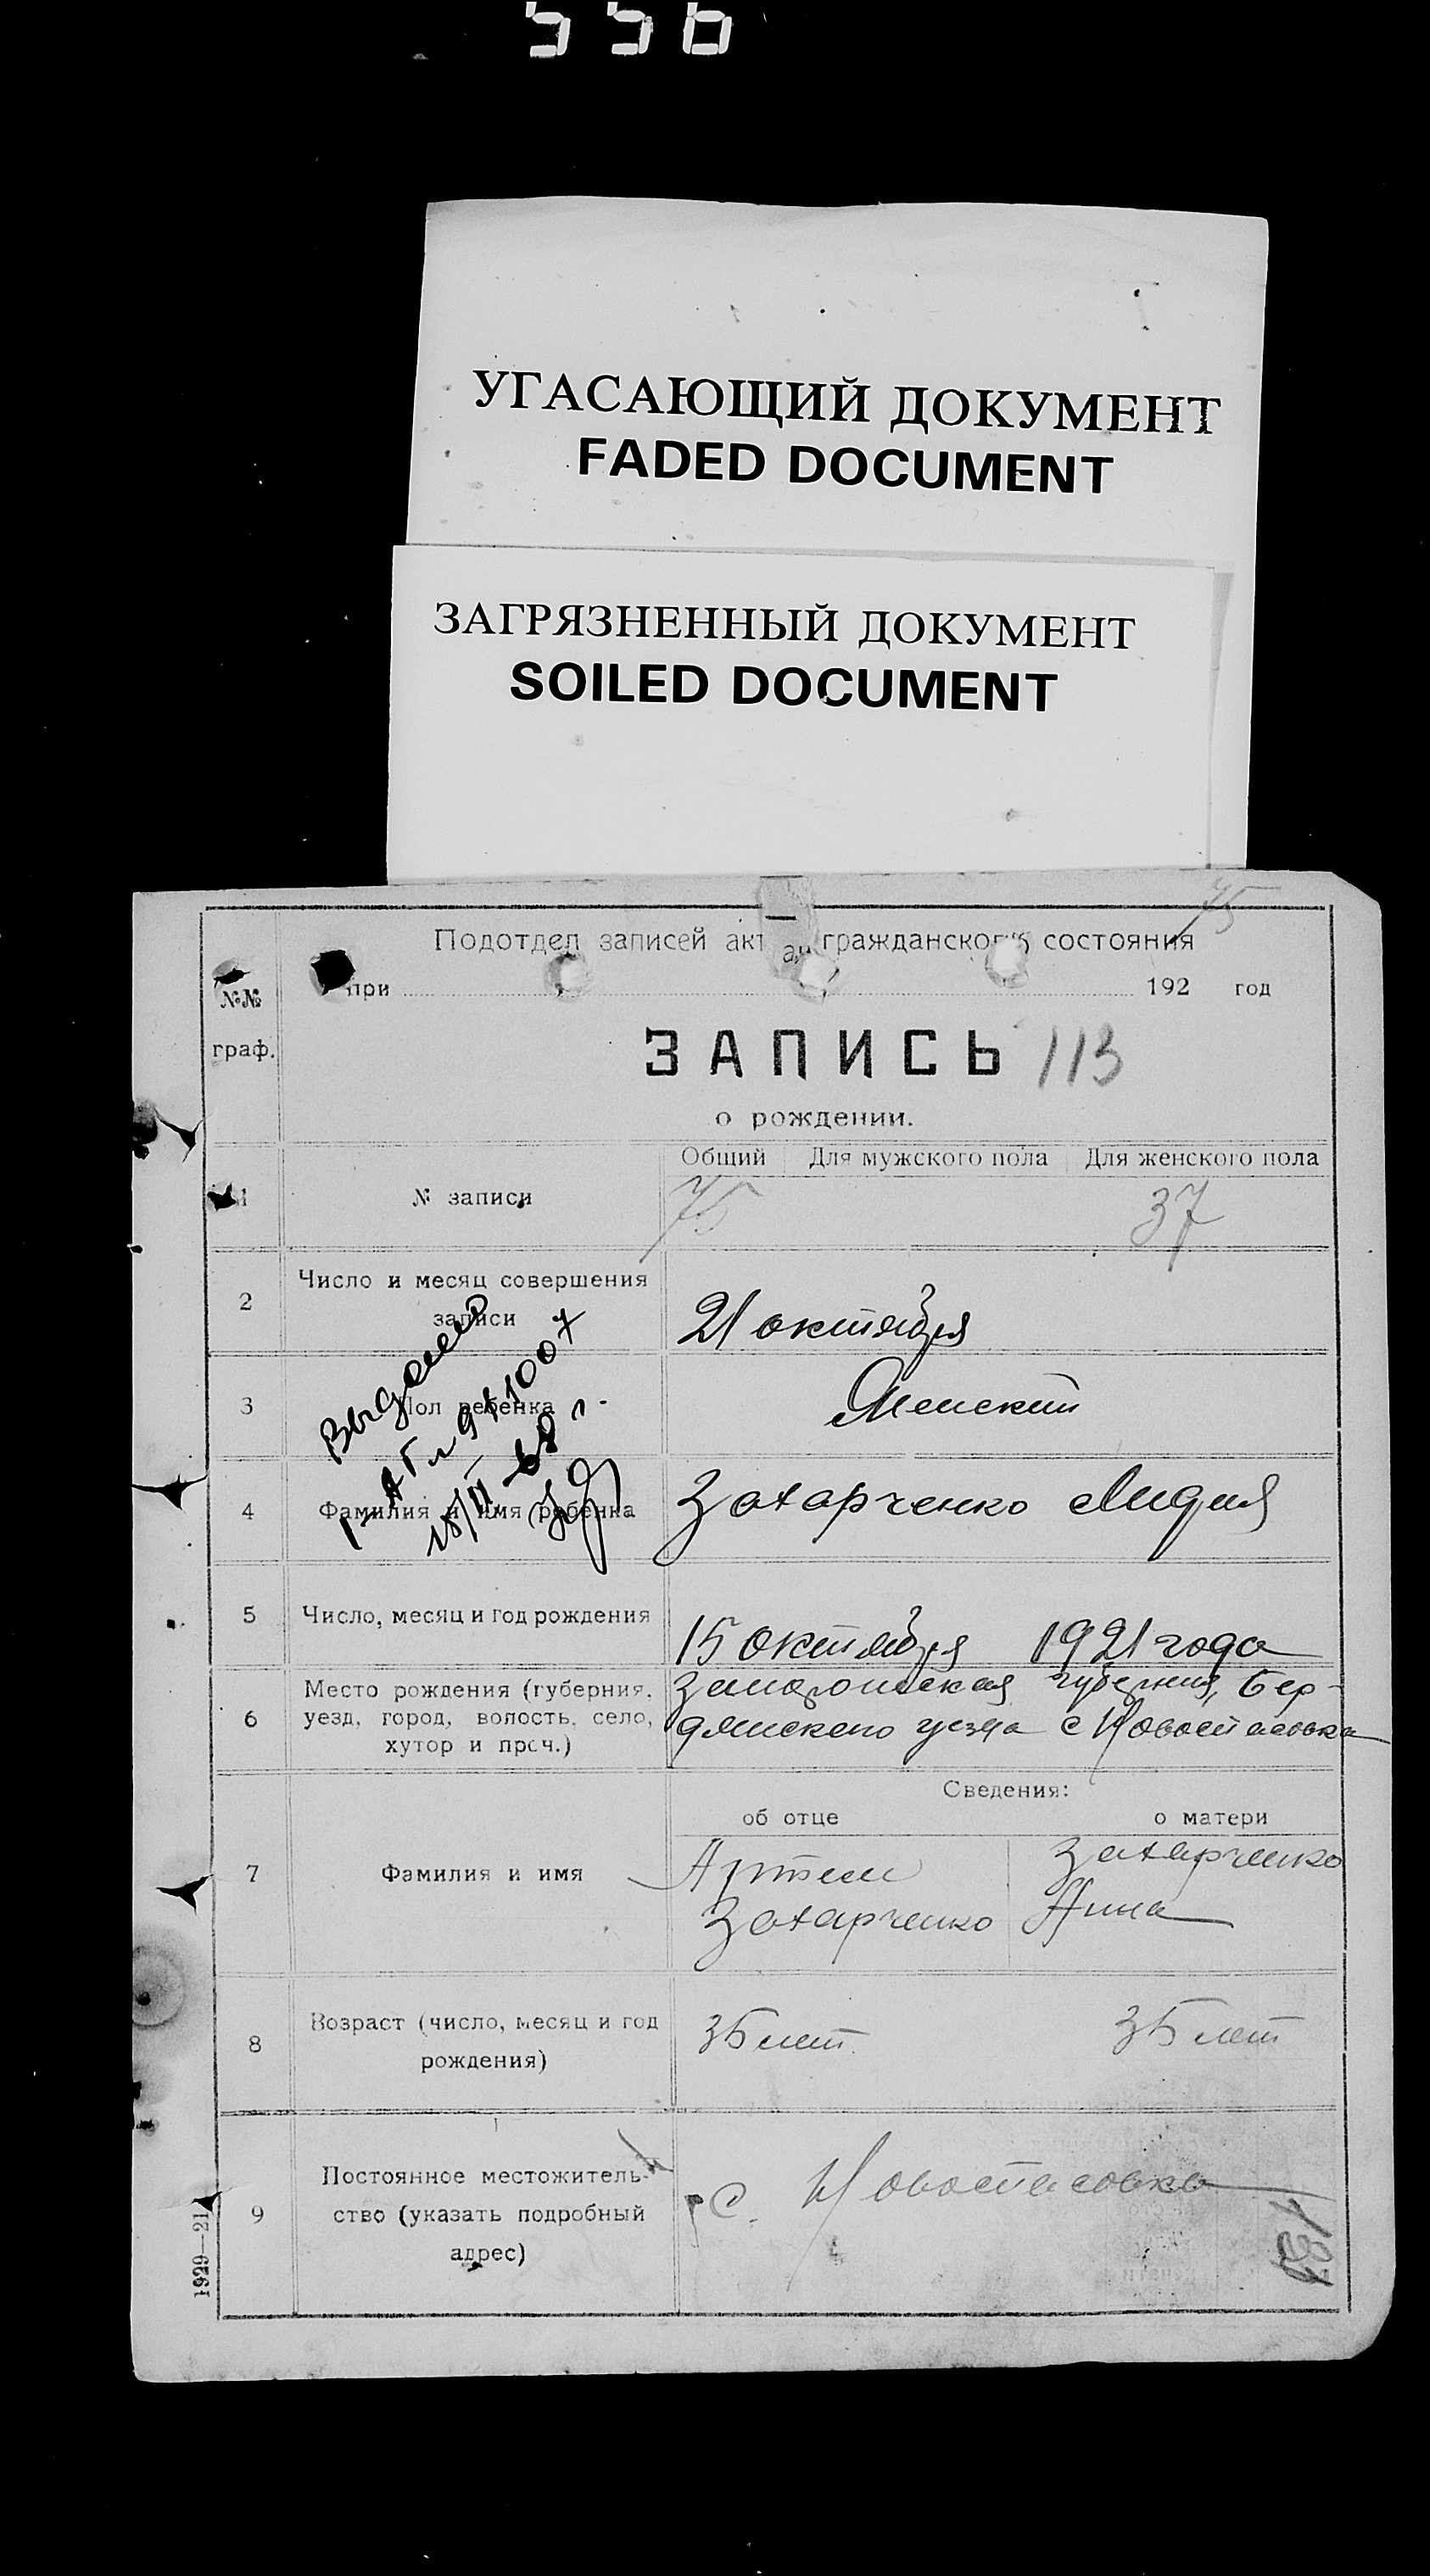 556
УГАСАЮЩИЙ ДОКУМЕНТ
FADED DOCUMENT
ЗАГРЯЗНЕННЫЙ ДОКУМЕНТ
SOILED DOCUMENT
75
Подотдел записей гражданского состояния
№№
граф.
при 192 год
ЗАПИСЬ 113
о рождении.
Общий Для мужского пола Для женского пола
1 № записи 75 37
2 Число и месяц совершения
записи 21 октября
3 Пол ребенка Женский
4 Фамилия и имя ребенка Захарченко Лидия
Выдано
5 Число, месяц и год рождения 15 октября 1921 года
6 Место рождения (губерния,
уезд, город, волость, село,
хутор и проч.)
Запорожская губерния, Бер-
дянского уезда с Новоспасовка
Сведения:
об отце о матери
7 Фамилия и имя
Артем
Захарченко
Захарченко
Анна
8 Возраст (число, месяц и год
рождения)
35 лет 35 лет
9 Постоянное местожитель-
ство (указать подробный
адрес)
с. Новоспасовка
1929—21